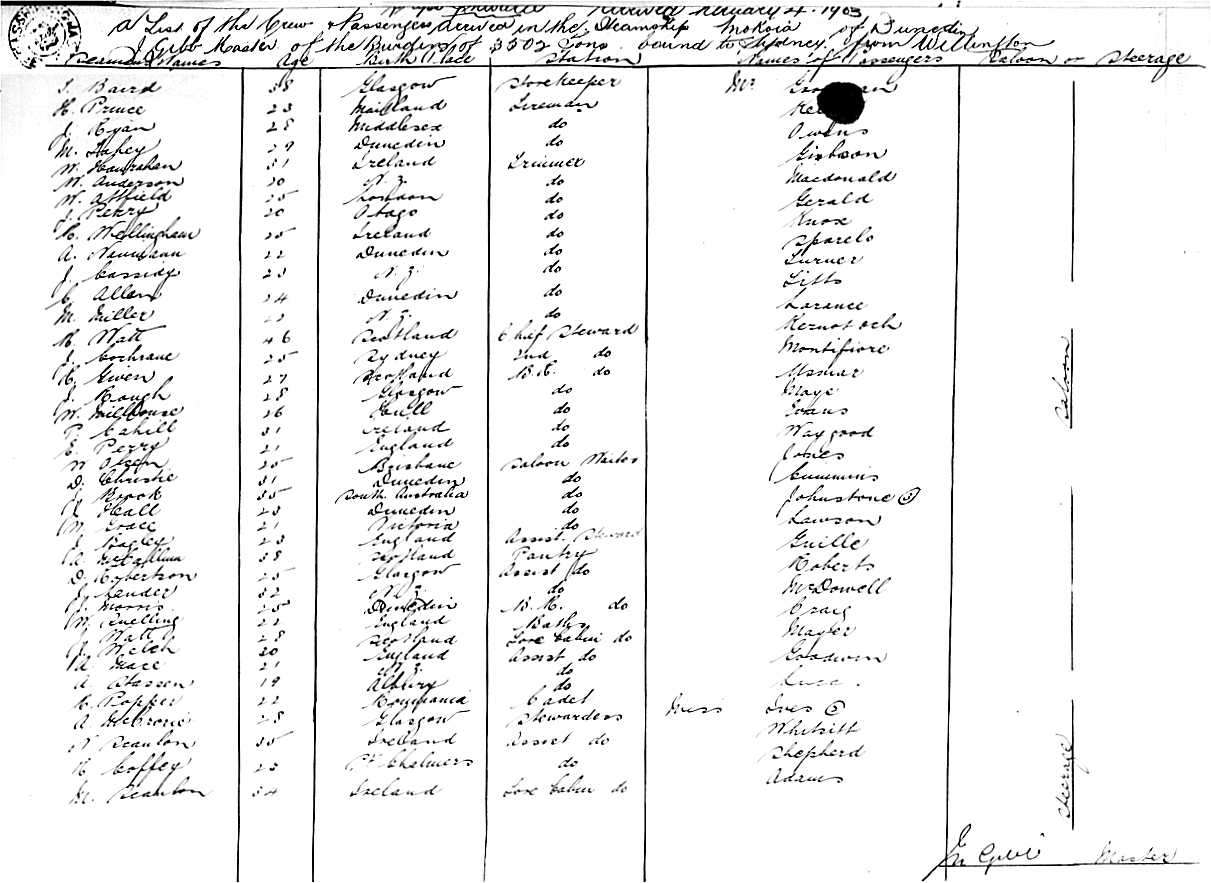 Arrived February 4. 1903
A List of the Crew & Passengers arrived in the Steamship Mokoia of Dunedin
J Gibb Master of the Burden of 3502 Tons bound to Sydney from Wellington
Seamens Names Age Birth Place Station Names of Passengers Saloon or Steerage
J. Baird 38 Glasgow Storekeeper Mr
H. Prince 23 Maitland Fireman
J. Ryan 28 Middlesex do Owens
M. 29 Dunedin do Gibson
W. Hanrahan 31 Ireland Trimmer Macdonald
W. Anderson 20 N. Z. do Gerald
W. Attfield 25 London do Knox
J. Perry 20 Otago do
H. Wellingham 25 Ireland do Turner
A. Naumann 22 Dunedin do
J. Cassidy 23 N. Z. do Larance
C. Allen 24 Dunedin do
M. Miller N. Z. do Montifiore
R. Watt 46 Scotland Chief Steward
J. Cochrane 25 Sydney 2nd do
H. Given 27 Scotland B. R. do Maye
J. Hough 28 Glasgow do Evans
W. Millhouse 26 Hull do Waygood
P. Cahill 31 Ireland do Jones
E. Perry 21 England do Cummins
W Olsen 25 Brisbane Saloon Waiter Johnstone
D. Christie 31 Dunedin do Lawson
J. Brook 35 South Australia do Guille
Hall 23 Dunedin do Roberts
W. Grace 21 Victoria do McDowell
J. Bagley 23 England Assist. Steward Craig
A. McCallum 38 Scotland Pantry Mayer
D. Robertson 25 Glasgow Assist do Goodwin
J. Lander 32 N. Z. do
J. Morris 25 Dunedin B. R. do Miss Ives
W. Snelling 22 England Baths Whitsitt
J. Watt 28 Scotland Fore Cabin do Shepherd
J. Welch 20 England Assist do Adams
A. Mace 21 N. Z. do
A Stassen 19 Albury do
H. Popper 22 Roumania Cadet
A. McCrone 28 Glasgow Stewardess
N Scanlon 35 Ireland Assist do
H Coffey 23 Pt. Chalmers do
M. Scanlon 34 Ireland Fore Cabin do
Saloon
Steerage
Jn Gibb Master